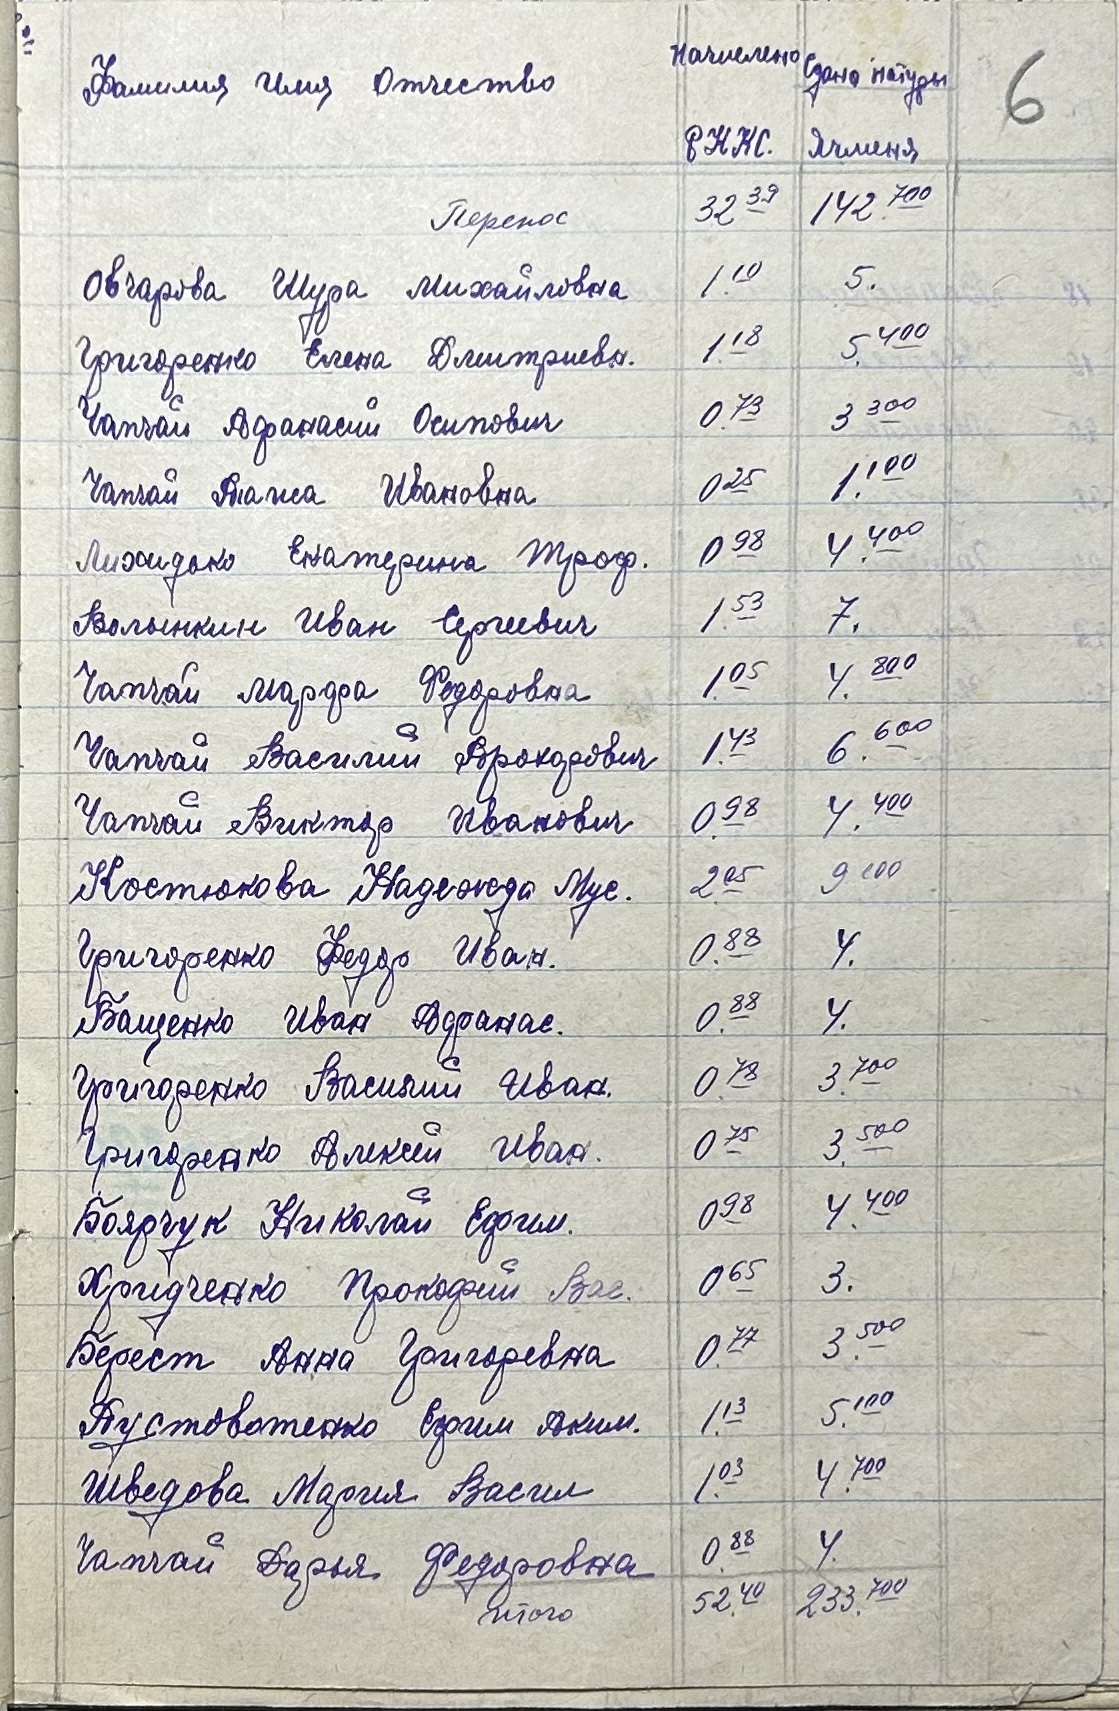 Фамилия Имя Отчество Начислено Сдано натуры 6
РККС. Ячменя
Перенос 32 39 142.700
Овчарова Шура Михайловна 1.10 5.
Григоренко Елена Дмитриевн. 1.18 5.400
Чапчай Афанасий Осипович 0.73 3 300
Чапчай Ивановна 0 25 1.100
Екатерина Троф. 0 98 4.400
Волынкин Иван Сергеевич 1.53 7.
Чапчай Марфа Федоровна 1.05 4.800
Чапчай Василий Прокорович 1.43 6.600
Чапчай Виктор Иванович 0.98 4.400
Костюкова Надежда Мус. 2.05 9 100
Григоренко Федор Иван. 0.88 4.
Бащенко Иван Афанас. 0.88 4.
Григоренко Василий Иван. 0.78 3.700
Григоренко Алексей Иван. 0 75 3.500
Боярчук Николай Ефим. 0 98 4.400
Хридченко Прокофий Вас. 0 65 3.
Берест Анна Григоревна 0.77 3.500
Пустоватенко Ефим Аким. 1.13 5.100
Шведова Мария Васил 1.03 4.700
Чапчай Дарья Федоровна 0.88 4.
итого 52.40 233.700